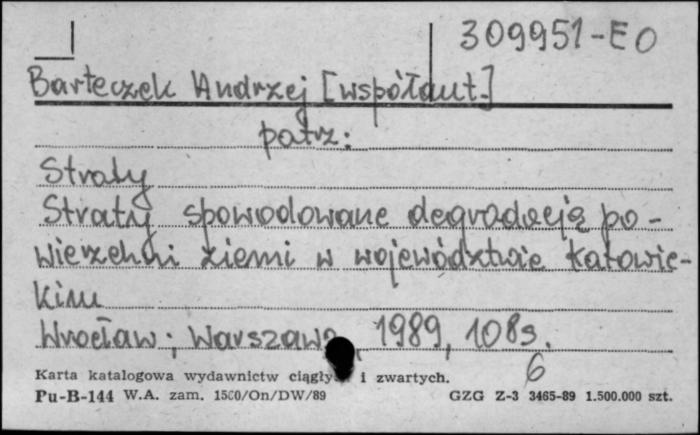 309951-EO
Barteczek Andrzej [współaut.]
patrz:
Straty
Straty spowodowane degradacją po-
wierzchni ziemi w województwie katowic-
kim
Wrocław; Warszawa, 1989, 108s.
6
Karta katalogowa wydawnictw ciągłych i zwartych.
Pu-B-144 W.A. zam. 1500/On/DW/89 GZG Z-3 3465-89 1.500.000 szt.